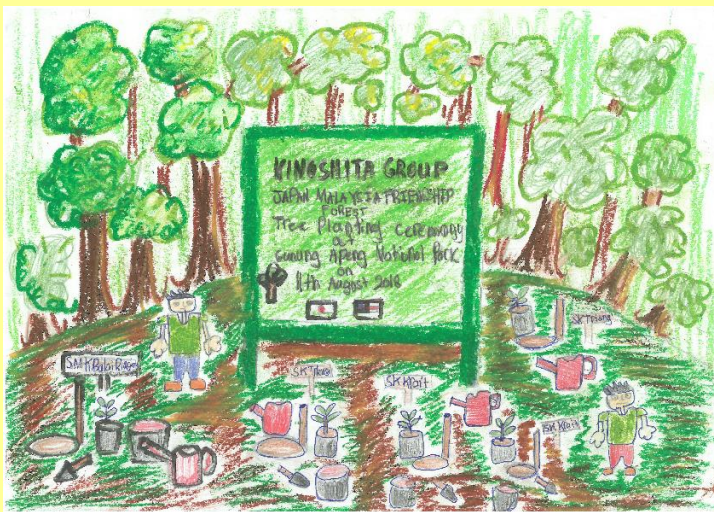 KINOSHITA GROUP
JAPAN MALAYSIA FRIENDSHIP
FOREST
Tree Planting Ceremony
at
Gunung Apeng National Park
on
11th August 2018
SMK Balai Ringin
SK
SK Krait
SK
SK Krait